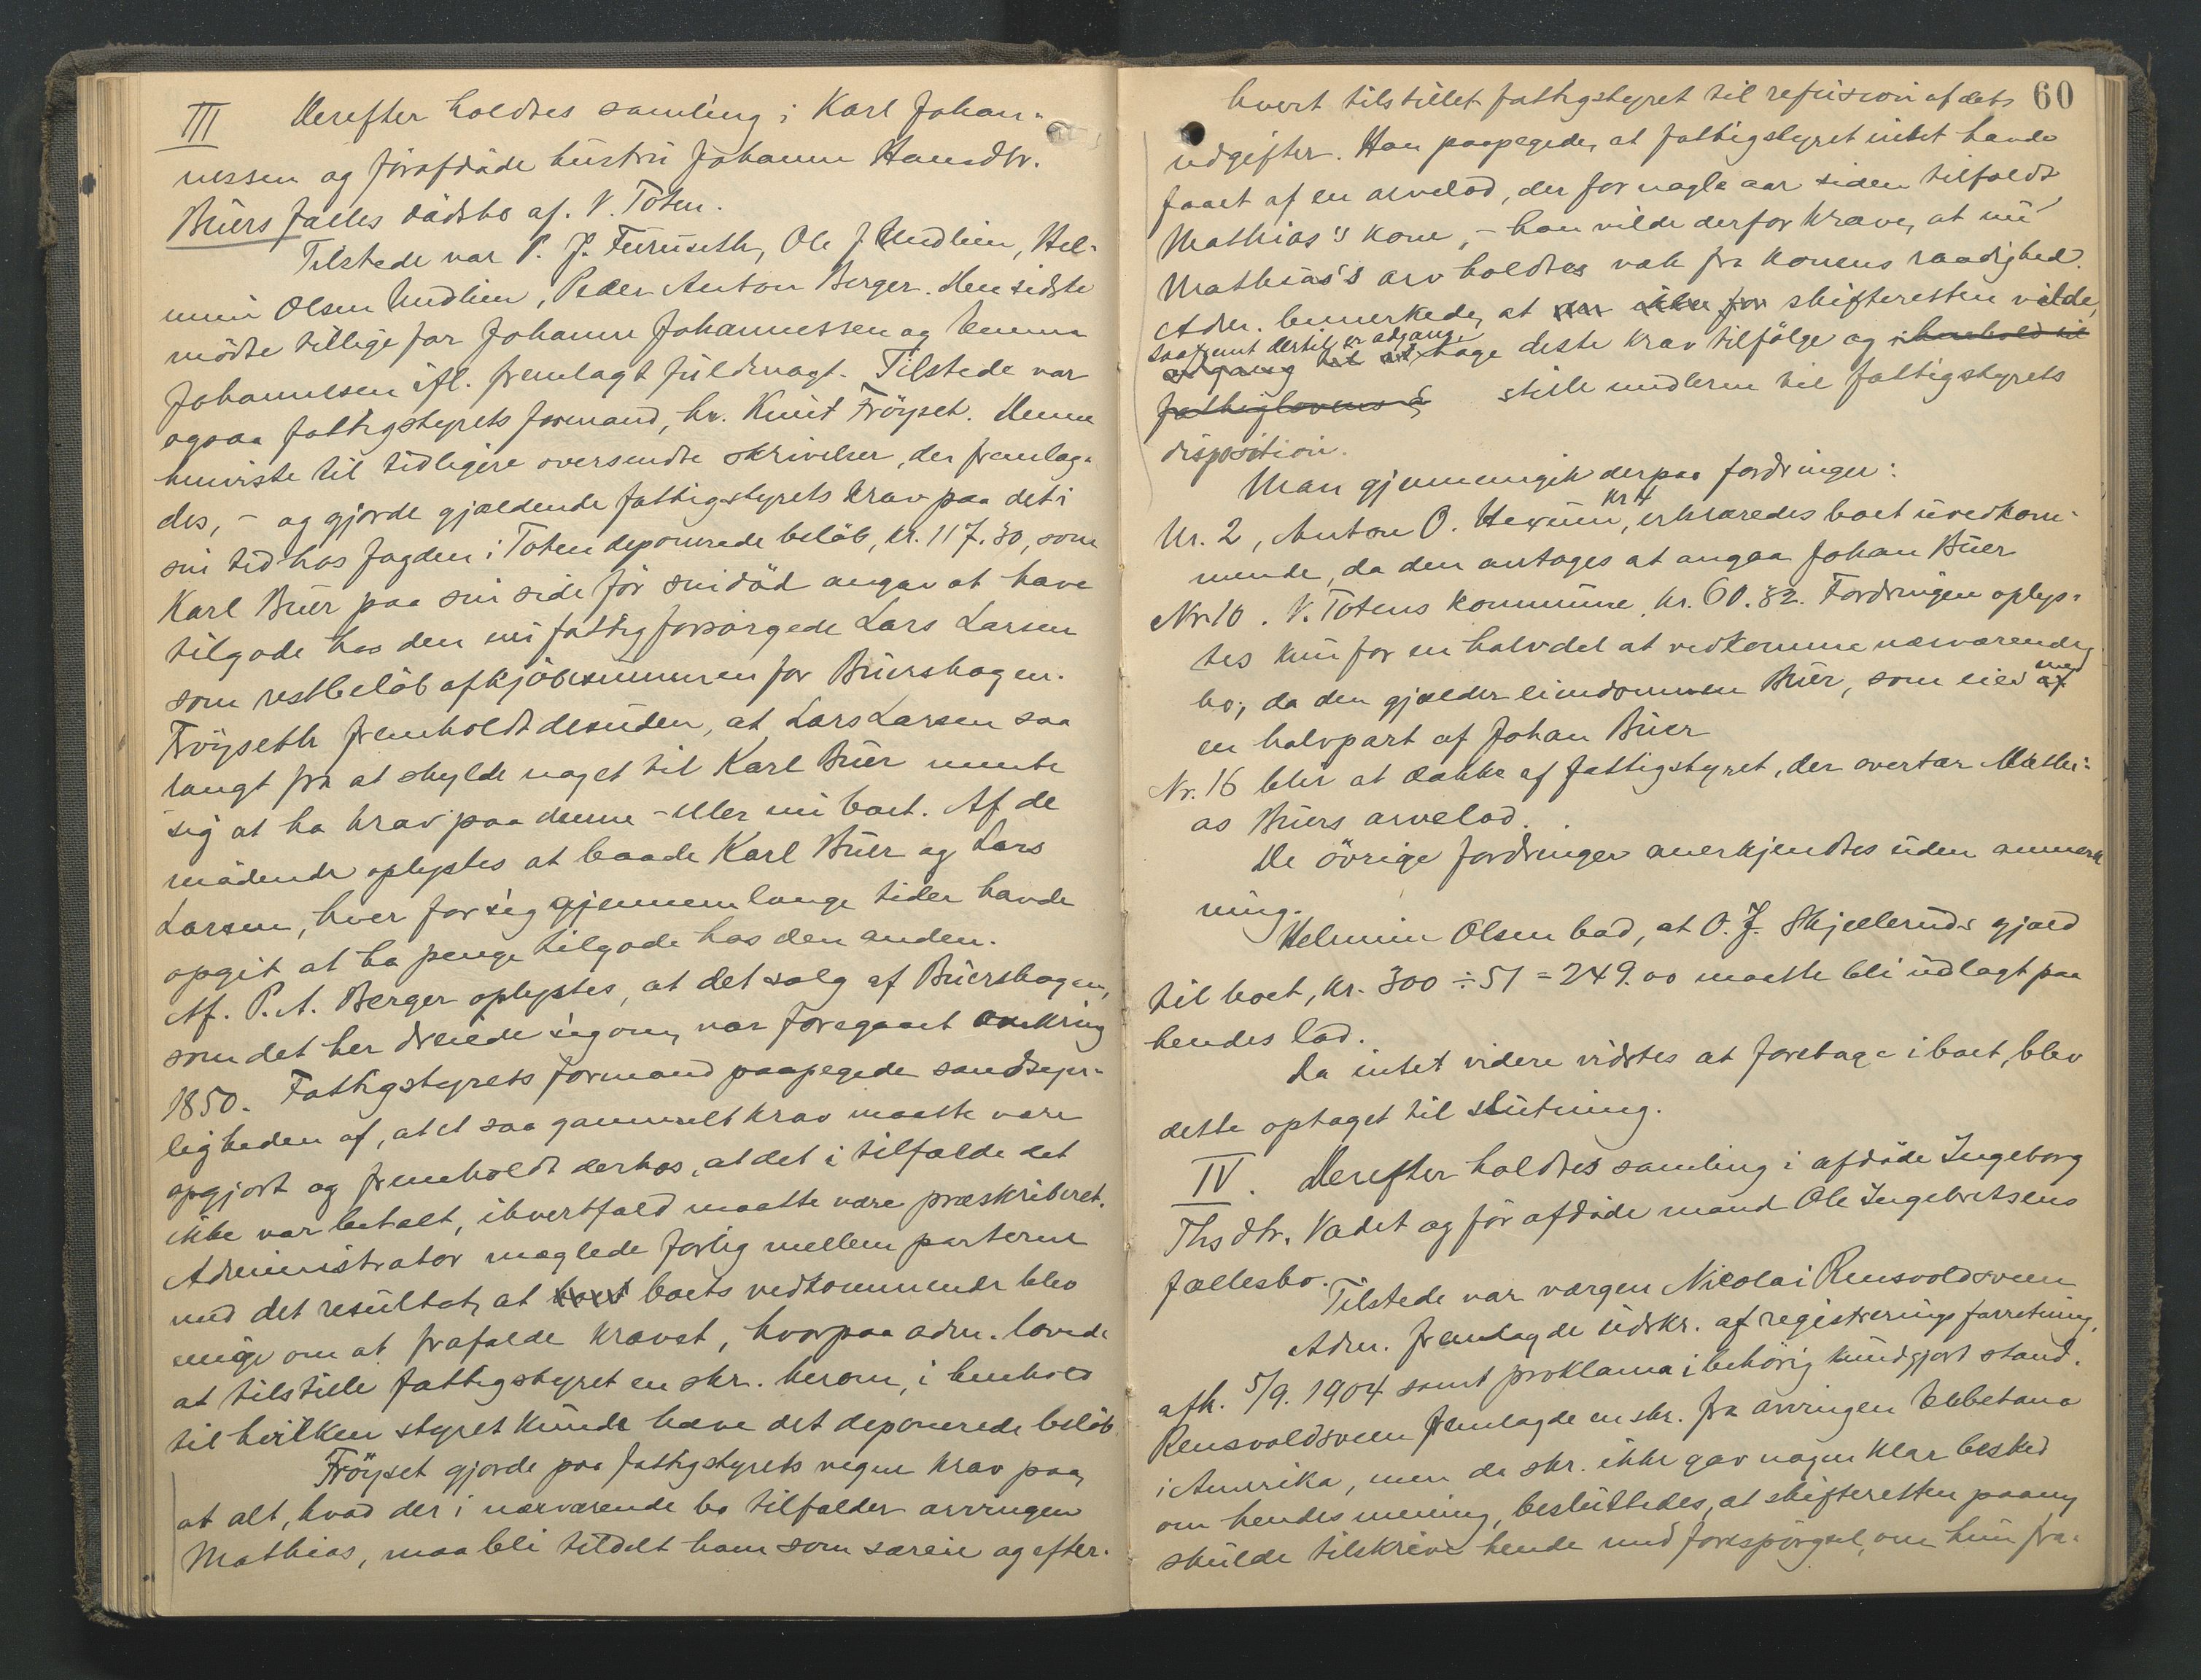 III Derefter holdtes samling i Karl Johan-
nessen og førafdøde hustru Johanne Hansdtr.
Buers fælles dødsbo af V. Toten.
Tilstede var P. J. Furuseth, Ole J. Undlien, Hel-
mine Olsen Undlien, Peder Anton Berger. Den sidste
mødte tillige for Johanne Johannessen og Emma
Johannesen ifl. fremlagt fuldmagt. Tilstede var
ogsaa fattigstyrets formand, hr. Knut Frøyset. Denne
henviste til tidligere oversendte skrivelser, der fremlag-
des, - og gjorde gjældende fattigstyrets krav paa det i
sin tid hos fogden i Toten deponerede beløb, kr. 117.30, som
Karl Buer paa sin side før sin død angav at have
tilgode hos den nu fattigforsørgede Lars Larsen
som restbeløb af kjøbesummen for Buershagen.
Frøyseth fremholdt desuden, at Lars Larsen saa
langt fra at skylde noget til Karl Buer mente
sig at ha krav paa denne - eller nu boet. Af de
mødende oplystes at baade Karl Buer og Lars
Larsen, hver for sig gjennem lange tider havde
opgit at ha penge tilgode hos den anden.
Af P. A. Berger oplystes, at det salg af Buershagen,
som det her dreiede sig om, var foregaaet omkring
1850. Fattigstyrets formand paapegede sandsyn-
ligheden af, at et saa gammelt krav maatte være
opgjort og fremholdt derhos, at det i tilfælde det
ikke var betalt, ihvertfald maatte være præskriberet.
Administrator mæglede forlig mellem parterne
med det resultat, at boet boets vedkommende blev
enige om at frafalde kravet, hvorpaa adm. lovede
at tilstille fattigstyret en skr. herom, i henhold
til hvilken styret kunde hæve det deponerede beløb.
Frøyset gjorde paa fattigstyrets vegne krav paa,
at alt, hvad der i nærværende bo tilfalder arvingen
Mathias, maa bli tildelt ham som særeie og efter-
60
hvert tilstillet fattigstyret til refusion af dets
udgifter. Han paapegede, at fattigstyret intet havde
faaet af en arvelod, der for nogle aar siden tilfaldt
Mathias's kone, - han vilde derfor kræve, at nu
Mathias's arv holdtes væk fra konens raadighed.
Adm. bemerkede, at skifteretten vilde,
saafremt dertil er adgang
adgang til at tage dette krav tilfølge og i henhold til
fattiglovens § stille midlerne til fattigstyrets
disposition.
Man gjennemgik derpaa fordringer:
Nr. 2, Anton O. Hexum, kr 4, erklæredes boet uvedkom-
mende, da den antages at angaa Johan Buer
Nr. 10. V. Totens kommune, kr. 60.82. Fordringen oplys-
tes kun for en halvdel at vedkomme nærværende
bo, da den gjælder eiendommen Buer, som eies af med
en halvpart af Johan Buer
Nr. 16 blir at dække af fattigstyret, der overtar Mathi-
as Buers arvelod.
De øvrige fordringer anerkjendtes uden anmerk
ning.
Helmine Olsen bad, at O. J. Skjelleruds gjæld
til boet, kr. 300 ÷ 51 = 249.00 maatte bli udlagt paa
hendes lod.
Da intet videre vidstes at foretage i boet, blev
dette optaget til slutning.
IV. Derefter holdtes samling i afdøde Ingeborg
Thsdtr. Vadet og før afdøde mand Ole Ingebretsens
fællesbo.
Tilstede var værgen Nicolai Rensvoldsveen
Adm. fremlagde udskr. af registreringsforretning,
afh. 5/9. 1904 samt proklama i behørig kundgjort stand.
Rensvoldsveen fremlagde en skr. fra arvingen Ebbetana
i Amerika, men da skr. ikke gav nogen klar besked
om hendes mening, besluttedes, at skifteretten paany
skulde tilskrive hende med forespørgsel, om hun fra-